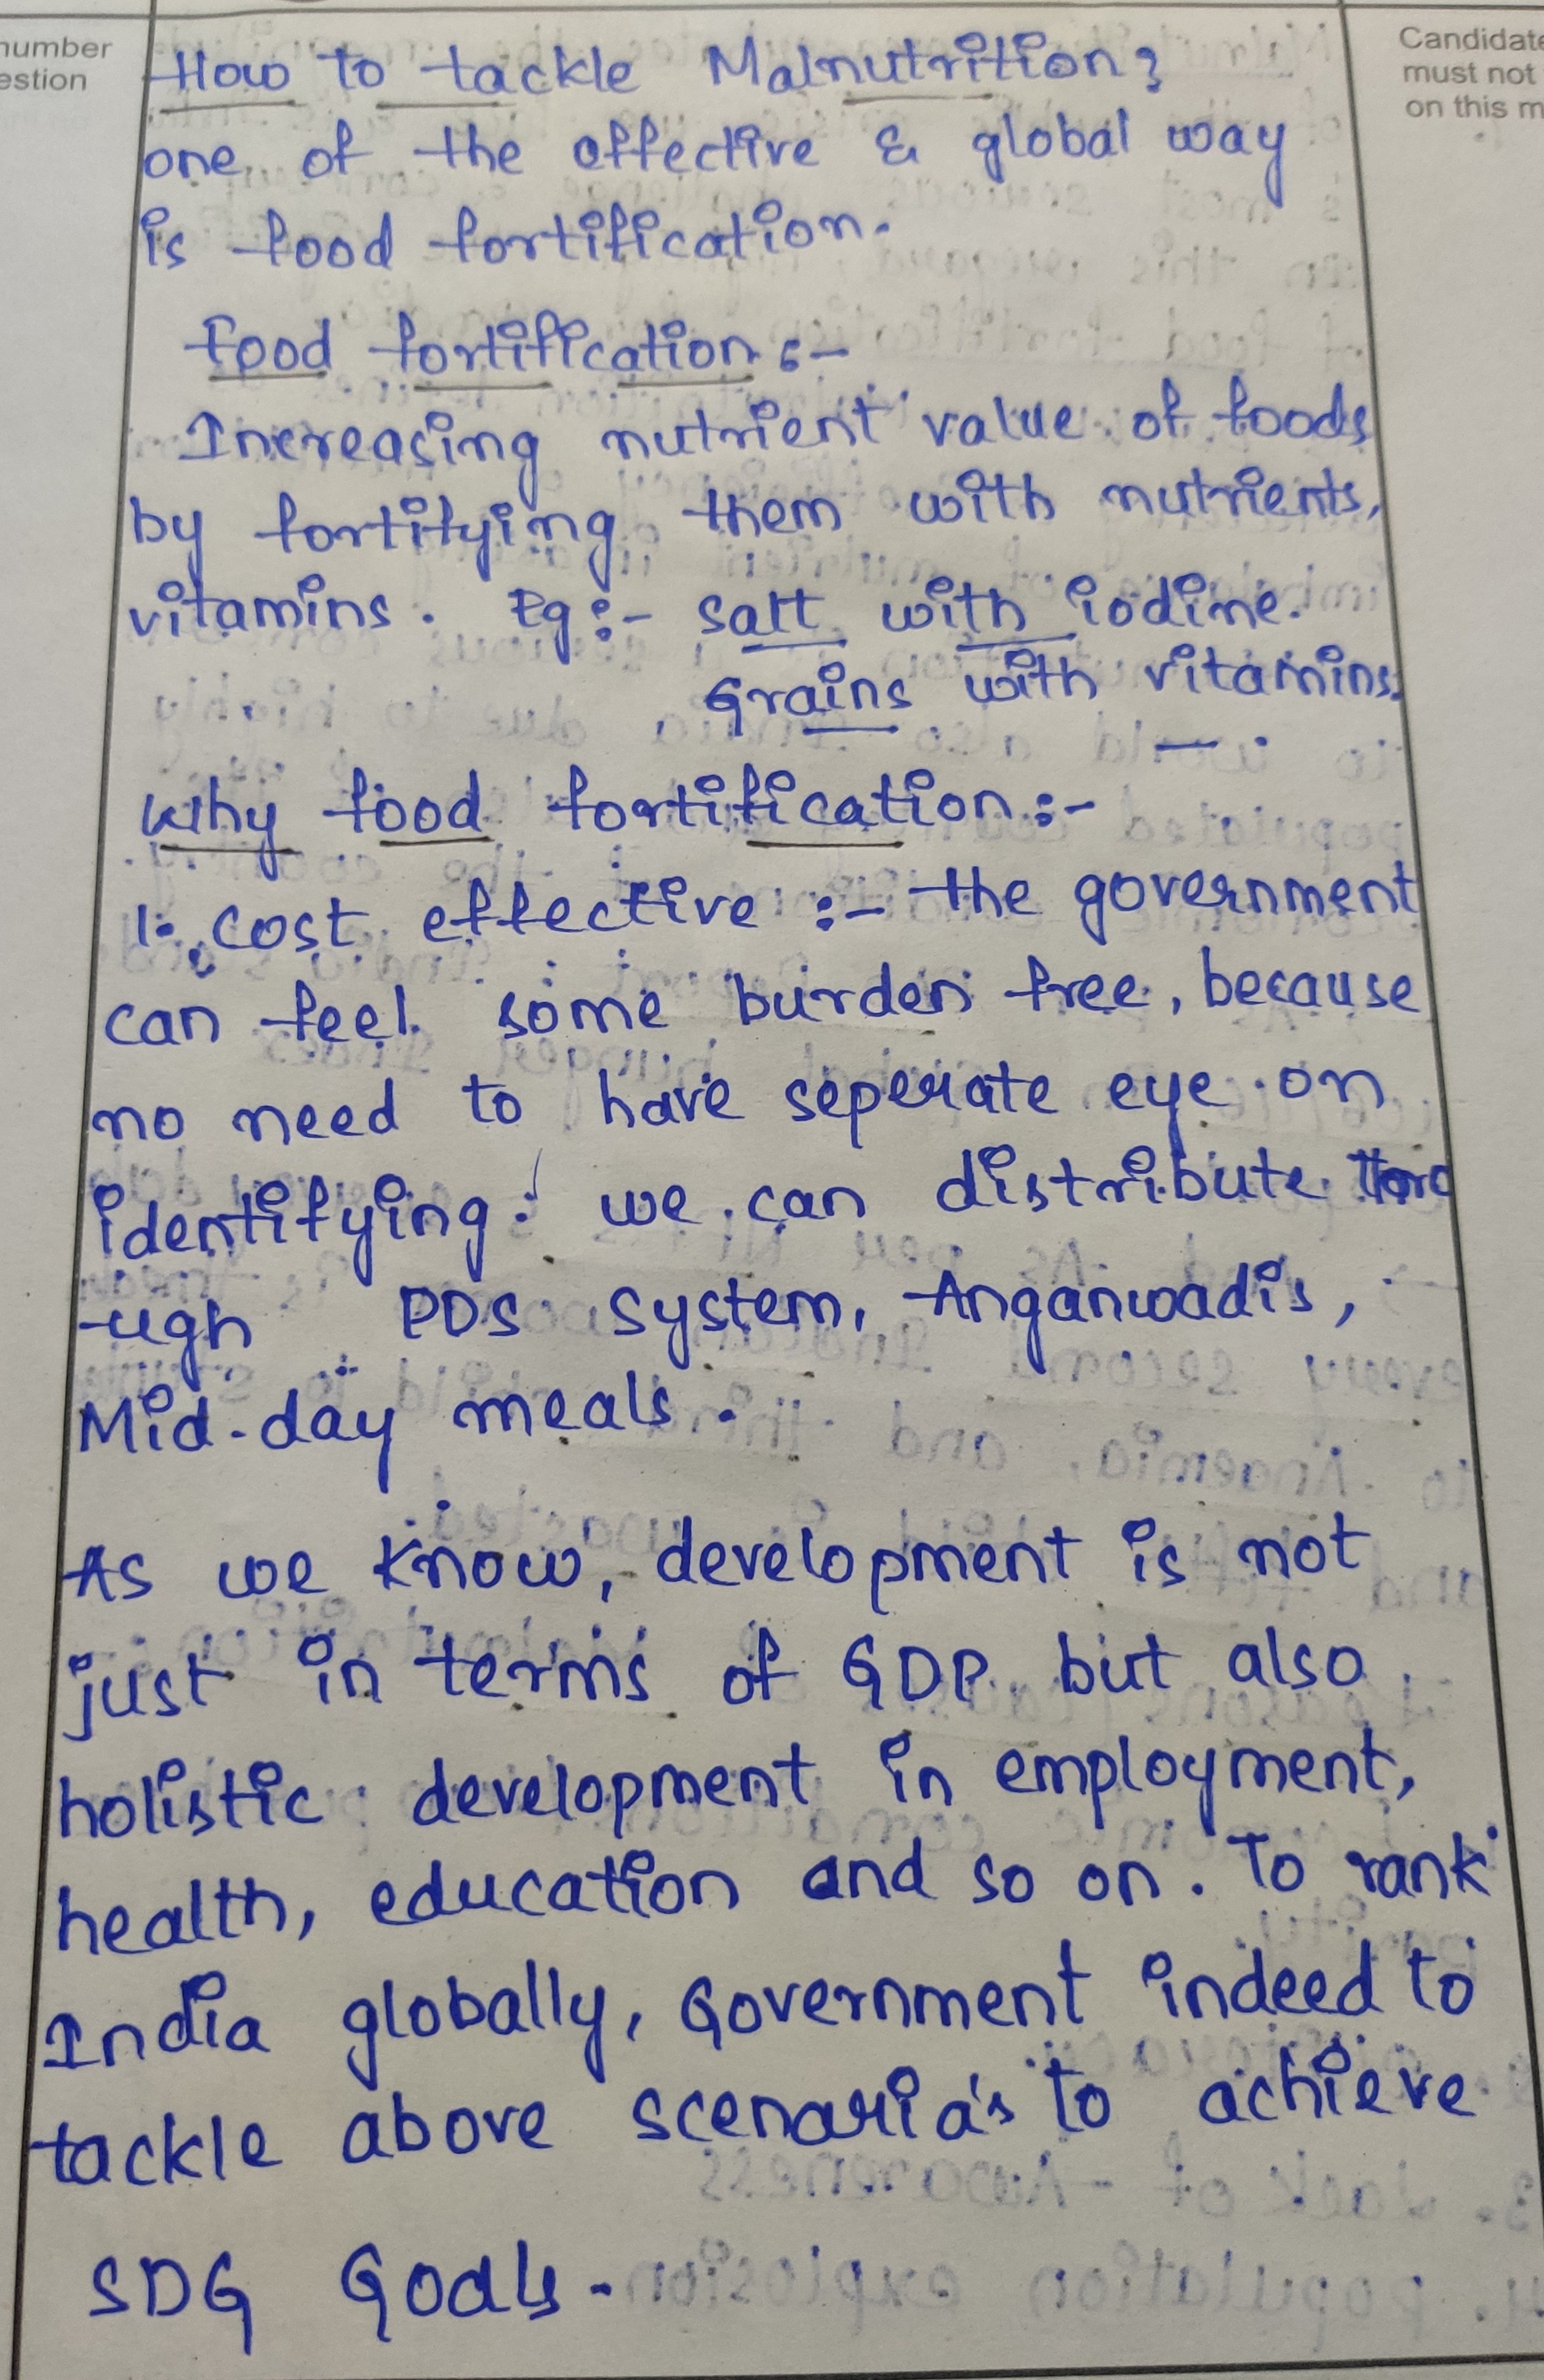 number
estion
Candidate
must not
on this m
How to tackle Malnutrition?
one of the effective & global way
is food fortification.
Food fortification :-
Increasing nutrient value of foods
by fortifying them with nutrients,
vitamins. Eg:- salt with iodine.
Grains with vitamins.
Why food fortification:-
1. cost effective :- the government
can feel some burden free, because
no need to have seperate eye on
identifying. we can distribute thro
ugh PDS system, Anganwadis,
Mid-day meals.
As we know, development is not
just in terms of GDP but also
holistic development in employment,
health, education and so on. To rank
India globally, Government indeed to
tackle above scenaria's to achieve
SDG Goals.